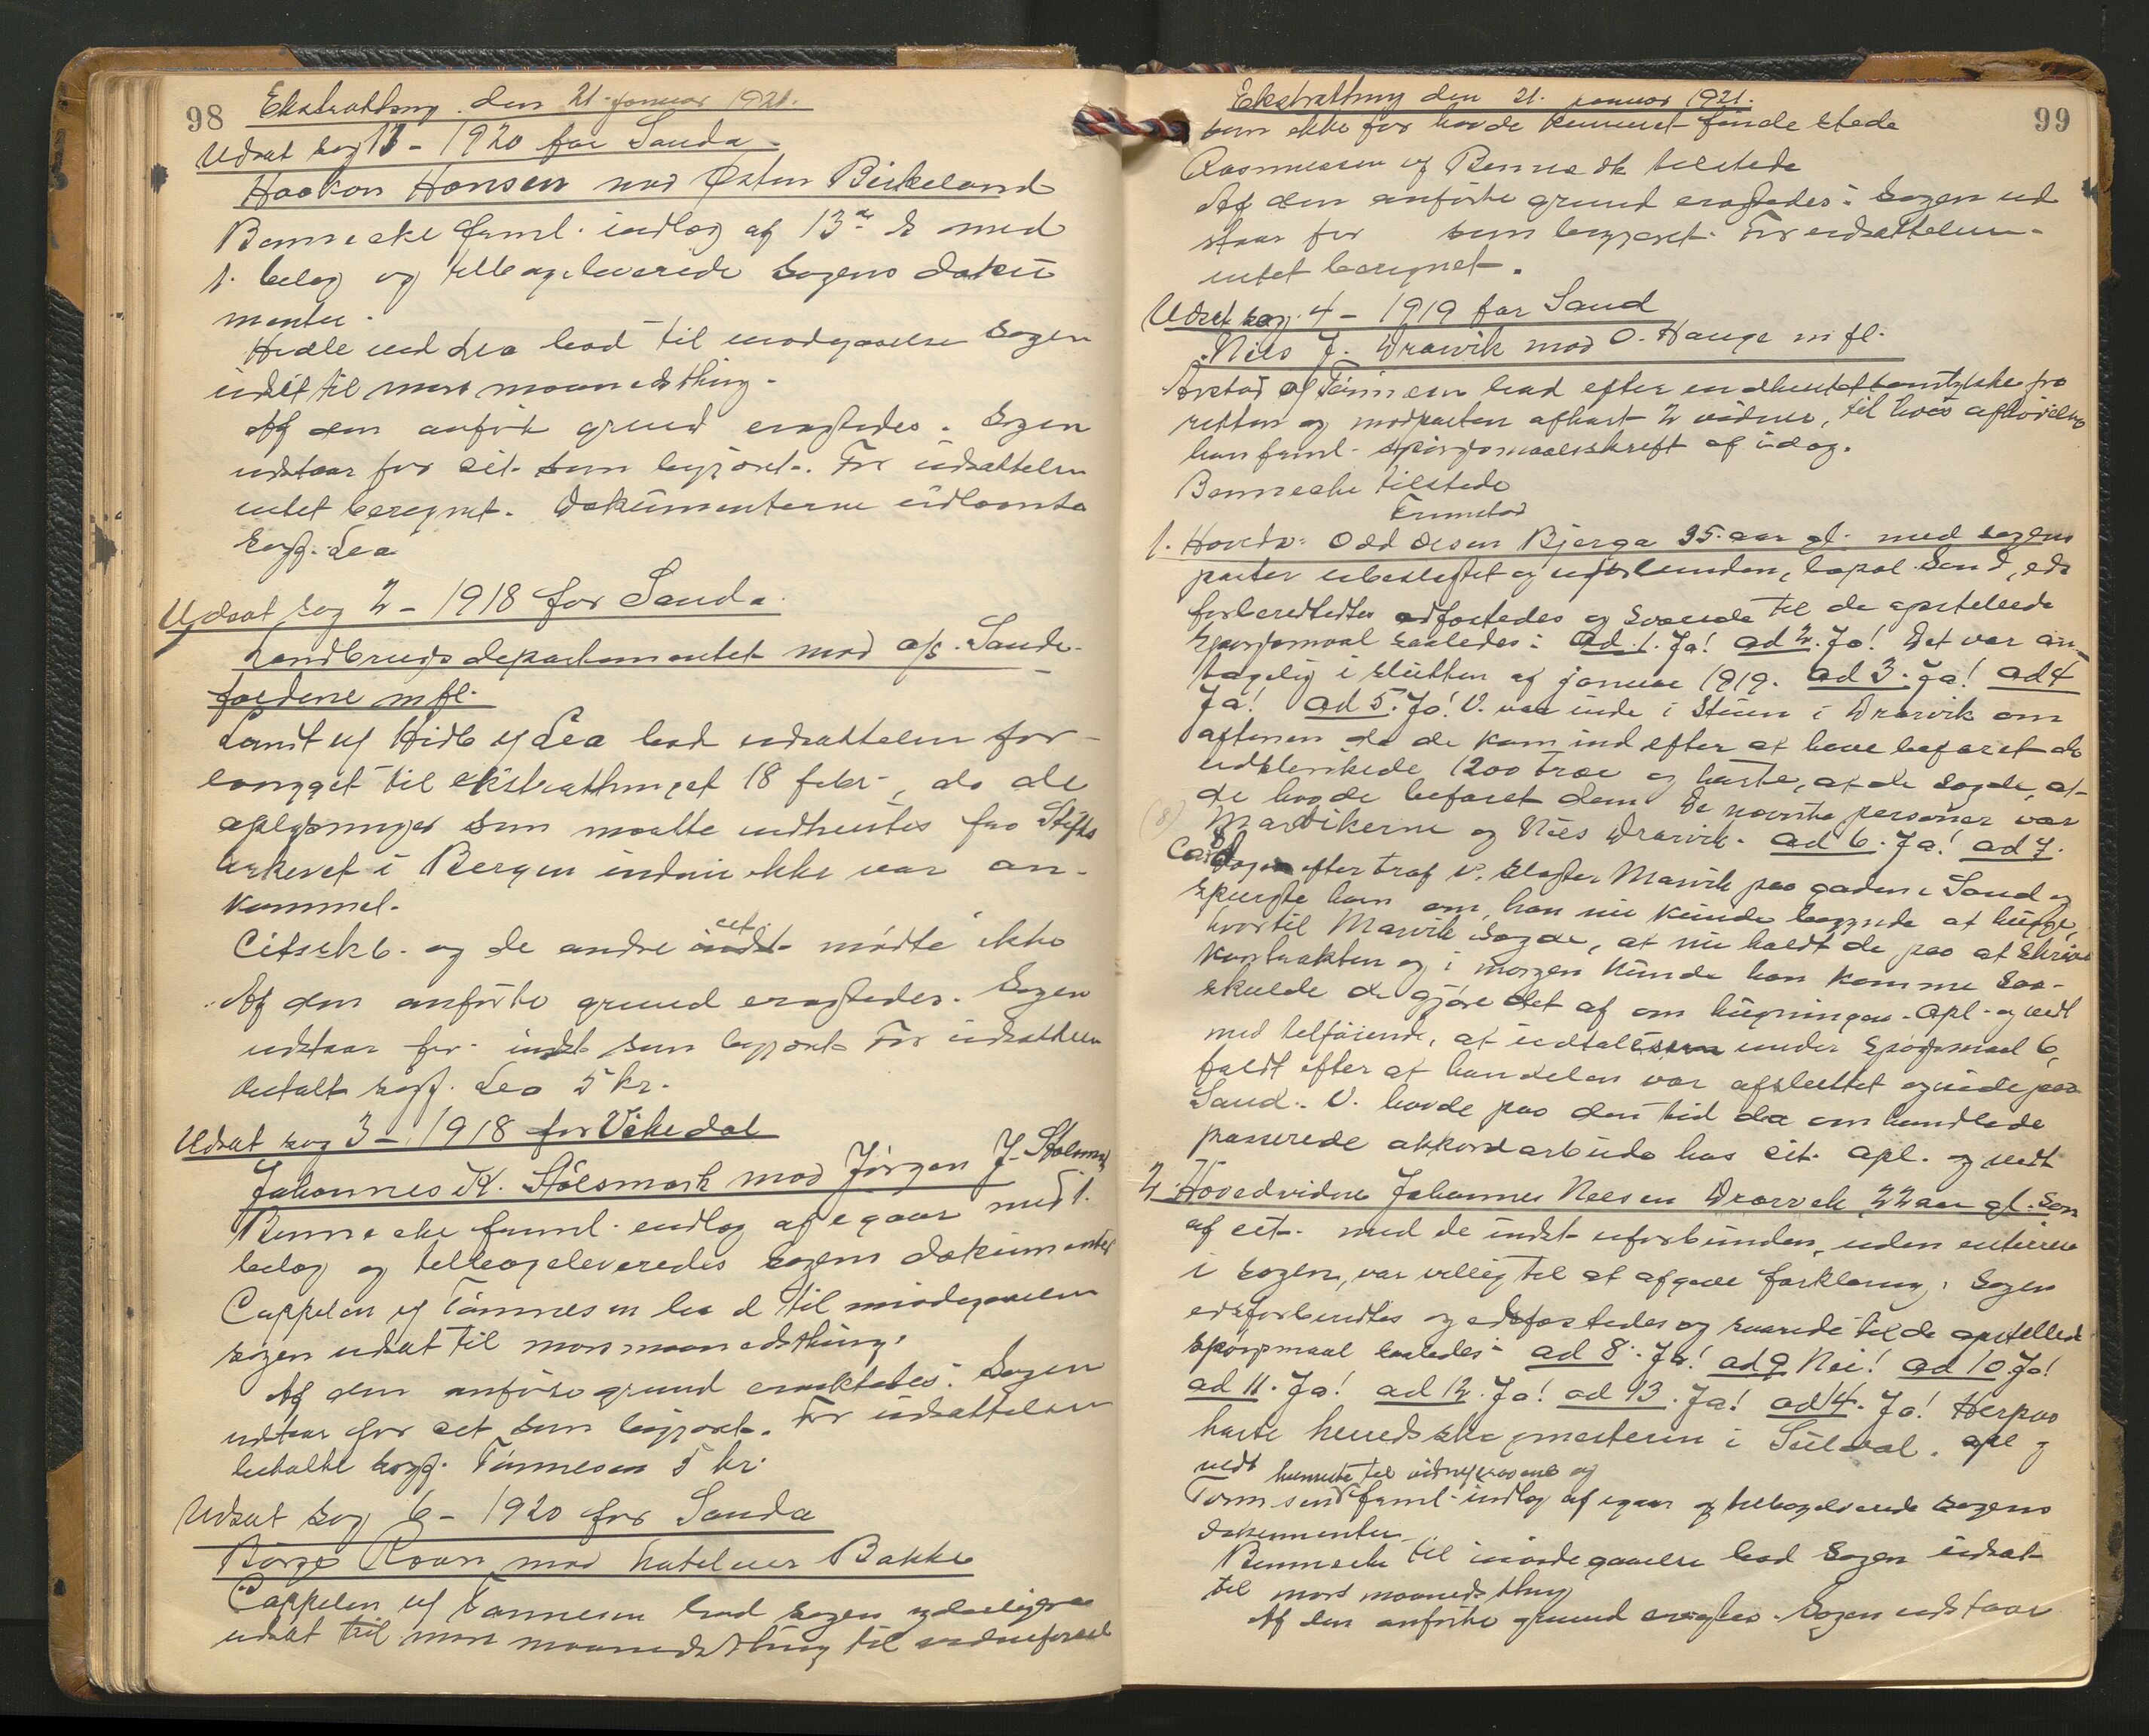 98
Ekstratting den 21. januar 1921.
Udsat sag 13 - 1920 for Sauda.
Haakon Hansen mod Østen Birkeland
Bennecke freml. indlæg af 13de ds med
1. belæg og tilbageleverede sagens doku
menter.
Hidle ved Lea bad til imødegaaelse sagen
udsat til mars maanedsthing.
Af den anførte grund eragtedes. Sagen
udstaar for cit. som begjæret. For udsættelsen
intet beregnet. Dokumenterne udlaante
sagf. Lea
Udsat sag 2 - 1918 for Sauda.
Landbrugsdepartementet mod a/s. Saude-
faldene m fl.
Lundt v/ Hidle v/ Lea bad udsættelsen for-
længet til ekstratthinget 18 febr., da de
oplysninger som maatte indhentes fra Stifts
arkivet i Bergen endnu ikke var an-
kommet.
Citsekb. og de andre indst. cit mødte ikke
Af den anførte grund eragtedes. Sagen
udstaar for indst som begjæret For udsættelsen
betalt sagf. Lea 5 kr.
Udsat sag 3 - 1918 for Vikedal
Johannes K. Stølsmark mod Jørgen J. Stølsmark
Bennecke freml. indlæg af igaar med 1.
belæg og tilbageleveredes sagens dokumenter
Cappelen v/ Tønnesen bad til imødegaaelse
sagen udsat til mars maanedsthing.
Af den anførte grund eragtedes: Sagen
udstaar for cit som begjæret. For udsættelsen
betalte sagf. Tønnesen 5 kr.
Udsat sag 6 - 1920 for Sauda
Børge Roan mod hotelier Bakke
Cappelen v/ Tønnesen bad sagen yderligere
udsat til mars maanedsthing til vidneførsel
99
Ekstratting den 21. januar 1921.
som ikke før havde kunnet finde sted
Rasmussen v/ Bennecke tilstede
Af den anførte grund eragtedes: Sagen ud
staar for som begjæret. For udsættelsen
intet beregnet.
Udsat sag 4 - 1919 for Sand
Niels J. Drarvik mod O. Hauge m fl.
Aarstad v/ Tønnesen bad efter indhentet samtykke fra
retten og modparten afhørt 2 vidner, til hvis afhørelse
han freml. spørgsmaalsskrift af idag.
Bennecke tilstede
1. Hovedv: Odd Olsen Bjerga 35 aar gl. med sagens
parter ubeslægtet og uforbunden, bopæl Sand, eds
forberedtedes edfæstedes og svarede til de opstillede
spørgsmaal saaledes: ad 1. Ja! ad 2. Ja! Det var an-
tagelig i slutten af januar 1919. ad 3. Ja! ad 4
Ja! ad 5. Ja! V. var inde i stuen i Drarvik om
aftenen da de kom ind efter at have befaret de
udblinkede 1200 træ og hørte, at de sagde, at
de havde befaret dem De nævnte personer var
(8) Marvikerne og Niels Drarvik. ad 6. Ja! ad 7.
Ca 8 dage efter traf V. Slagter Marvik paa gaden i Sand og
spurgte ham om, han nu kunde begynde at hugge,
hvortil Marvik sagde, at nu holdt de paa at skrive
kontrakten og i morgen kunde han komme saa-
skulde de gjøre det af om hugningen. Opl. og vedt
med tilføiende, at udtalelsen under spørgsmaal 6,
faldt efter at handelen var afsluttet og inde paa
Sand. V. havde paa den tid det omhandlede
passerede akkordarbeide hos cit. Opl. og vedt
2. Hovedvidne Johannes Nielsen Drarvik 22 aar gl. søn
af cit. med de indst. uforbunden, uden interesse
i sagen, var villig til at afgive forklaring i sagen
edsforberedtes og edfæstedes og svarede til de opstillede
spørgsmaal saaledes: ad 8. Ja! ad 9 Nei! ad 10. Ja!
ad 11. Ja! ad 12. Ja! ad 13. Ja! ad 14. Ja! Herpaa
hørte herredsskogmesteren i Suldal. Opl og
vedt
Tønnesen freml. indlæg af igaar og tilbageleverede sagens
dokumenter
Bennecke til imødegaaelse bad sagen udsat
til mars maanedsthing
Af den anførte grund eragtes. Sagen udstaar